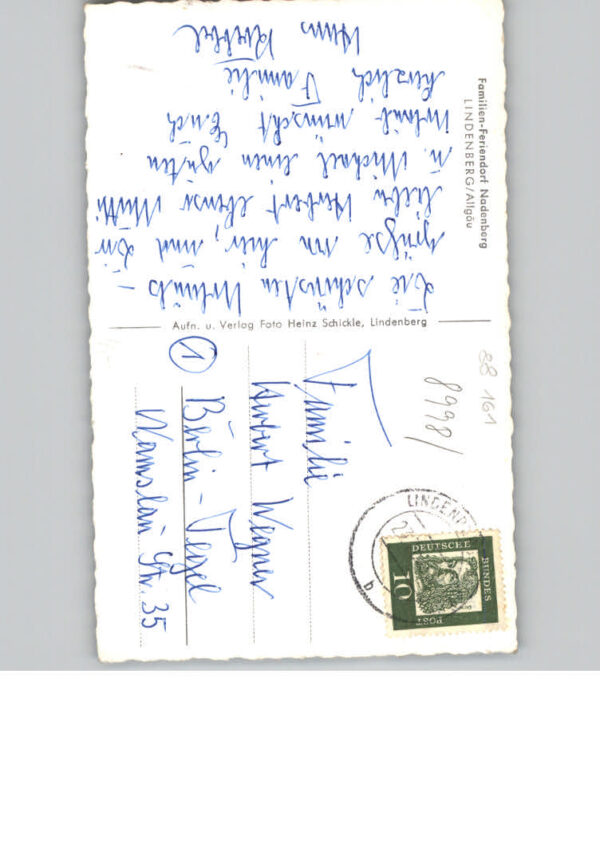 Familien-Feriendorf Nadenberg
LINDENBERG/Allgäu
Die schönsten Urlaubs-
grüße von hier, und Dir
lieber Herbert ebenso Mutti
u. Michael einen guten
Urlaub wünscht Euch
herzlich Familie
Hans
Aufn. u. Verlag Foto Heinz Schickle, Lindenberg
88 161
8998/
Familie
Herbert Wegner
1
Berlin-Tegel
Namslau Str. 35
DEUTSCHE
BUNDES
POST
10